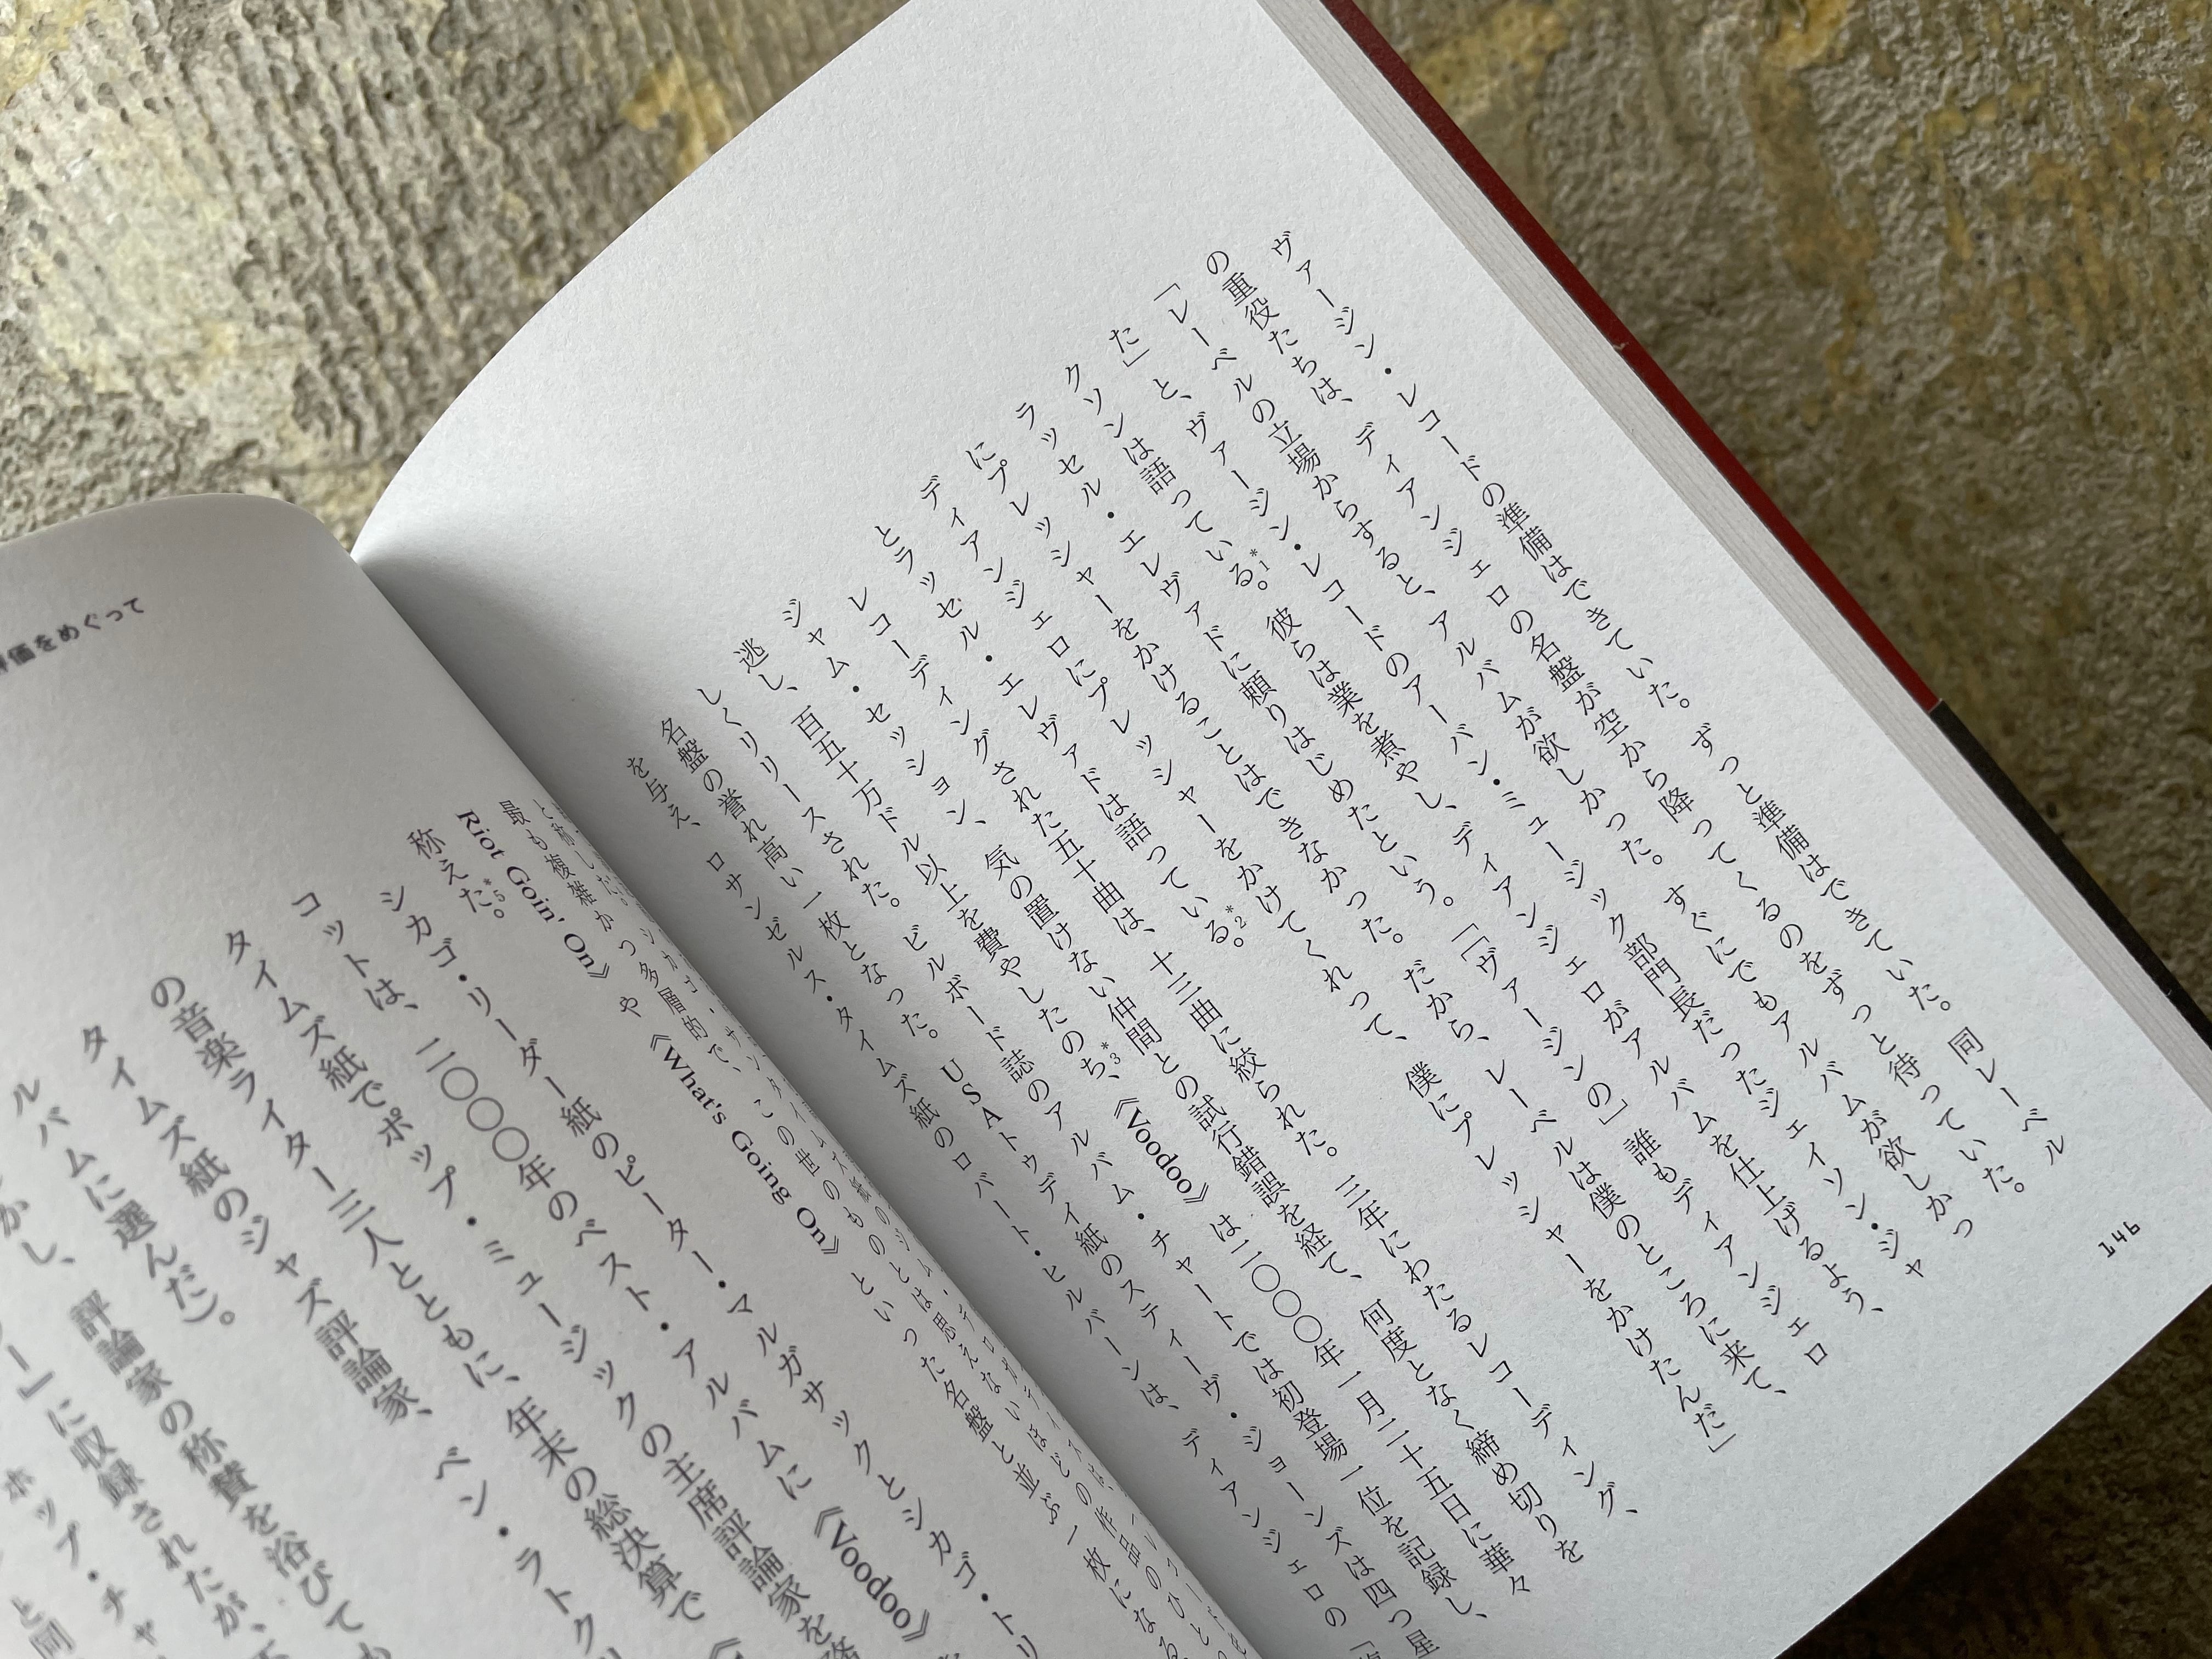 146
ヴァージン・レコードの準備はできていた。ずっと準備はできていた。同レーベル
の重役たちは、ディアンジェロの名盤が空から降ってくるのをずっと待っていた。
「レーベルの立場からすると、アルバムが欲しかった。すぐにでもアルバムが欲しかっ
た」と、ヴァージン・レコードのアーバン・ミュージック部門長だったジェイソン・ジャ
クソンは語っている*1。彼らは業を煮やし、ディアンジェロがアルバムを仕上げるよう、
ラッセル・エレヴァドに頼りはじめたという。「「ヴァージンの」誰もディアンジェロ
にプレッシャーをかけることはできなかった。だから、レーベルは僕のところに来て、
ディアンジェロにプレッシャーをかけてくれって、僕にプレッシャーをかけたんだ」
とラッセル・エレヴァドは語っている*2。
レコーディングされた五十曲は、十三曲に絞られた。三年にわたるレコーディング、
ジャム・セッション、気の置けない仲間との試行錯誤を経て、何度となく締め切りを
逃し、百五十万ドル以上を費やしたのち*3、《Voodoo》は二〇〇〇年一月二十五日に華々
しくリリースされた。ビルボード誌のアルバム・チャートでは初登場一位を記録し、
名盤の誉れ高い一枚となった。USAトゥデイ紙のスティーヴ・ジョーンズは四つ星
を与え、ロサンゼルス・タイムズ紙のロバート・ヒルバーンは、ディアンジェロの「
評価をめぐって
最も複雑かつ多層的で、この世のものとは思えないほどの作品のひとつ
Riot Goin' On》や《What's Going On》といった名盤と並ぶ一枚になる
称えた*5。
シカゴ・リーダー紙のピーター・マルガサックとシカゴ・トリ
コットは、二〇〇〇年のベスト・アルバムに《Voodoo》
タイムズ紙でポップ・ミュージックの主席評論家を務
の音楽ライター三人とともに、年末の総決算で《
タイムズ紙のジャズ評論家、ベン・ラトクリ
ルバムに選んだ）。
かし、評論家の称賛を浴びても
ー』に収録されたが、
ポップ・チャ
と同